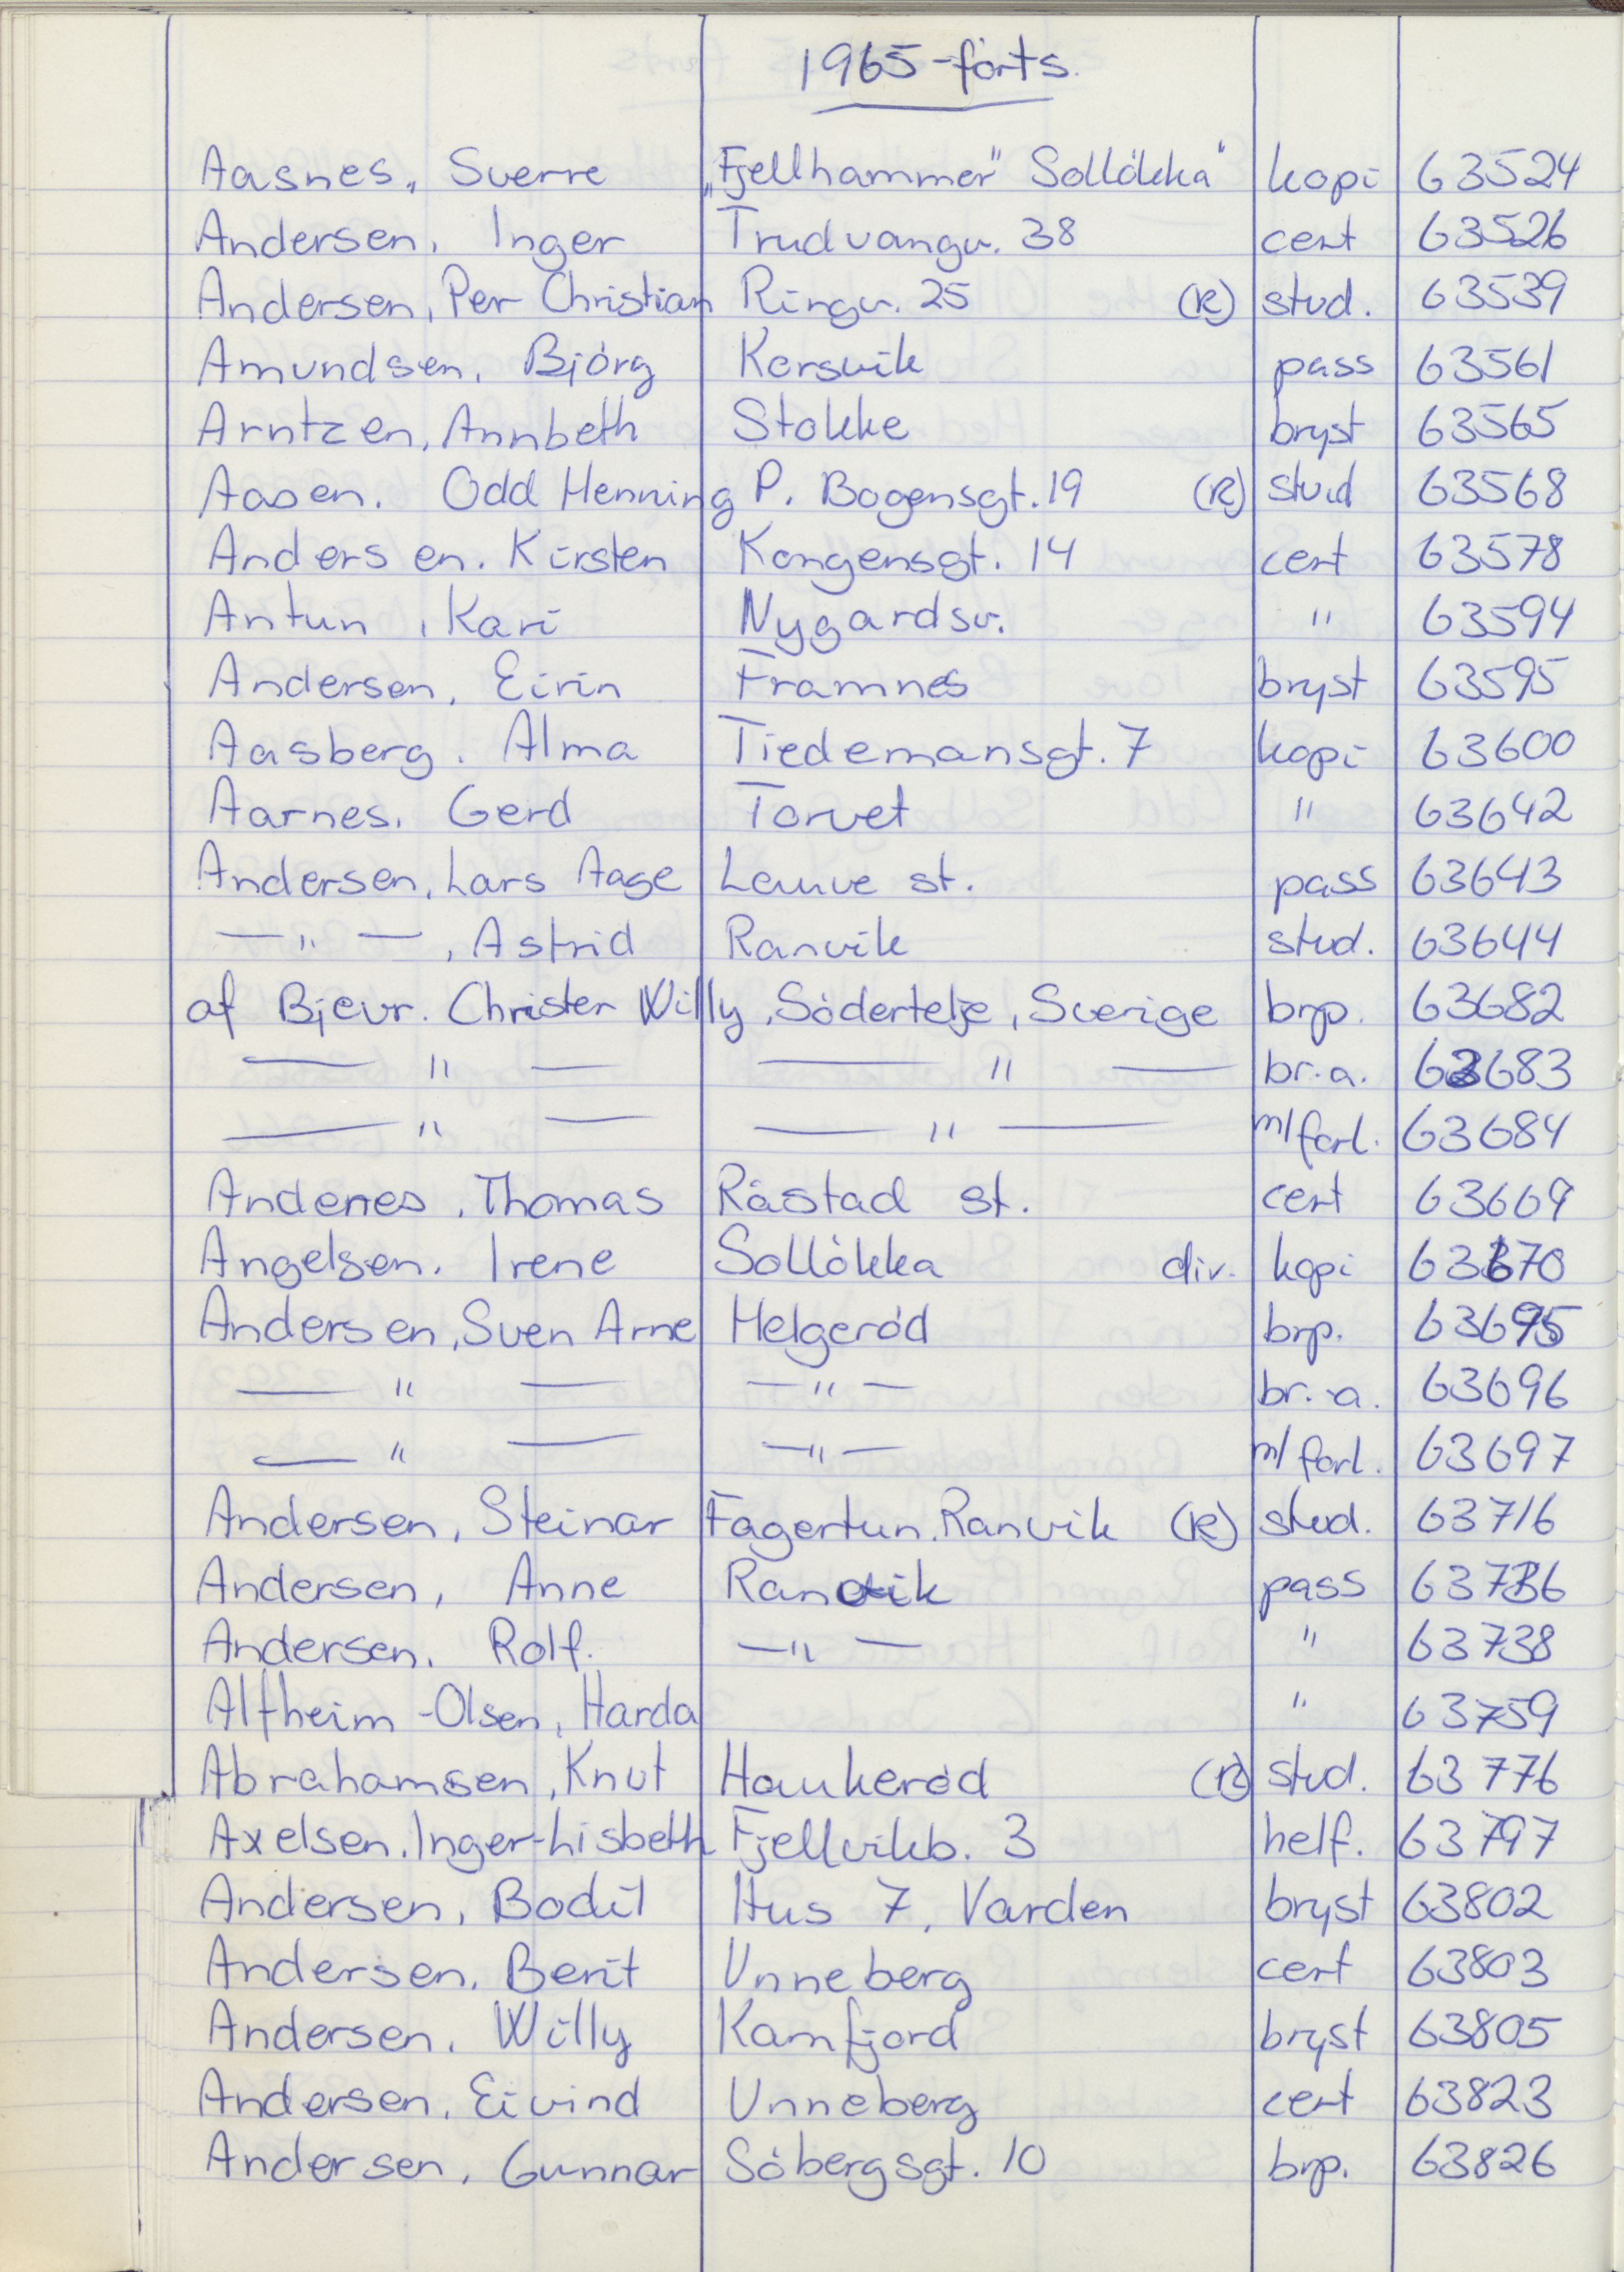 1965 - forts.
Aasnes, Sverre „Fjellhammer" Solløkka" kopi 63524
Andersen, Inger Trudvangv. 38 cert 63526
Andersen, Per Christian Ringv. 25 (R) stud. 63539
Amundsen, Bjørg Korsvik pass 63561
Arntzen, Annbeth Stokke bryst 63565
Aasen. Odd Henning P. Bogensgt. 19 (R) stud 63568
Andersen. Kirsten Kongensgt. 14 cert 63578
Antun, Kari Nygardsv. " 63594
Andersen, Eirin Framnes bryst 63595
Aasberg. Alma Tiedemansgt. 7 kopi 63600
Aarnes. Gerd Torvet " 63642
Andersen, Lars Aage Lauve st. pass 63643
— " —, Astrid Ranvik stud. 63644
af Bjevr. Christer Willy, Södertelje, Sverige brp. 63682
— " — — " — br.a. 63683
— " — — " — m/forl. 63684
Andenes, Thomas Råstad st. cert 63669
Angelsen. Irene Solløkka div. kopi 63670
Andersen, Sven Arne Helgerød brp. 63695
— " — — " — br.a. 63696
— " — — " — m/forl. 63697
Andersen, Steinar Fagertun. Ranvik (R) stud. 63716
Andersen, Anne Ranvik pass 63736
Andersen. Rolf. — " — " 63738
Alfheim-Olsen, Harda " 63759
Abrahamsen, Knut Haukerød (R) stud. 63776
Axelsen. Inger-Lisbeth Fjellvikb. 3 helf. 63797
Andersen, Bodil Hus 7, Varden bryst 63802
Andersen. Berit Unneberg cert 63803
Andersen. Willy Kamfjord bryst 63805
Andersen. Eivind Unneberg cert 63823
Andersen, Gunnar Søbergsgt. 10 brp. 63826